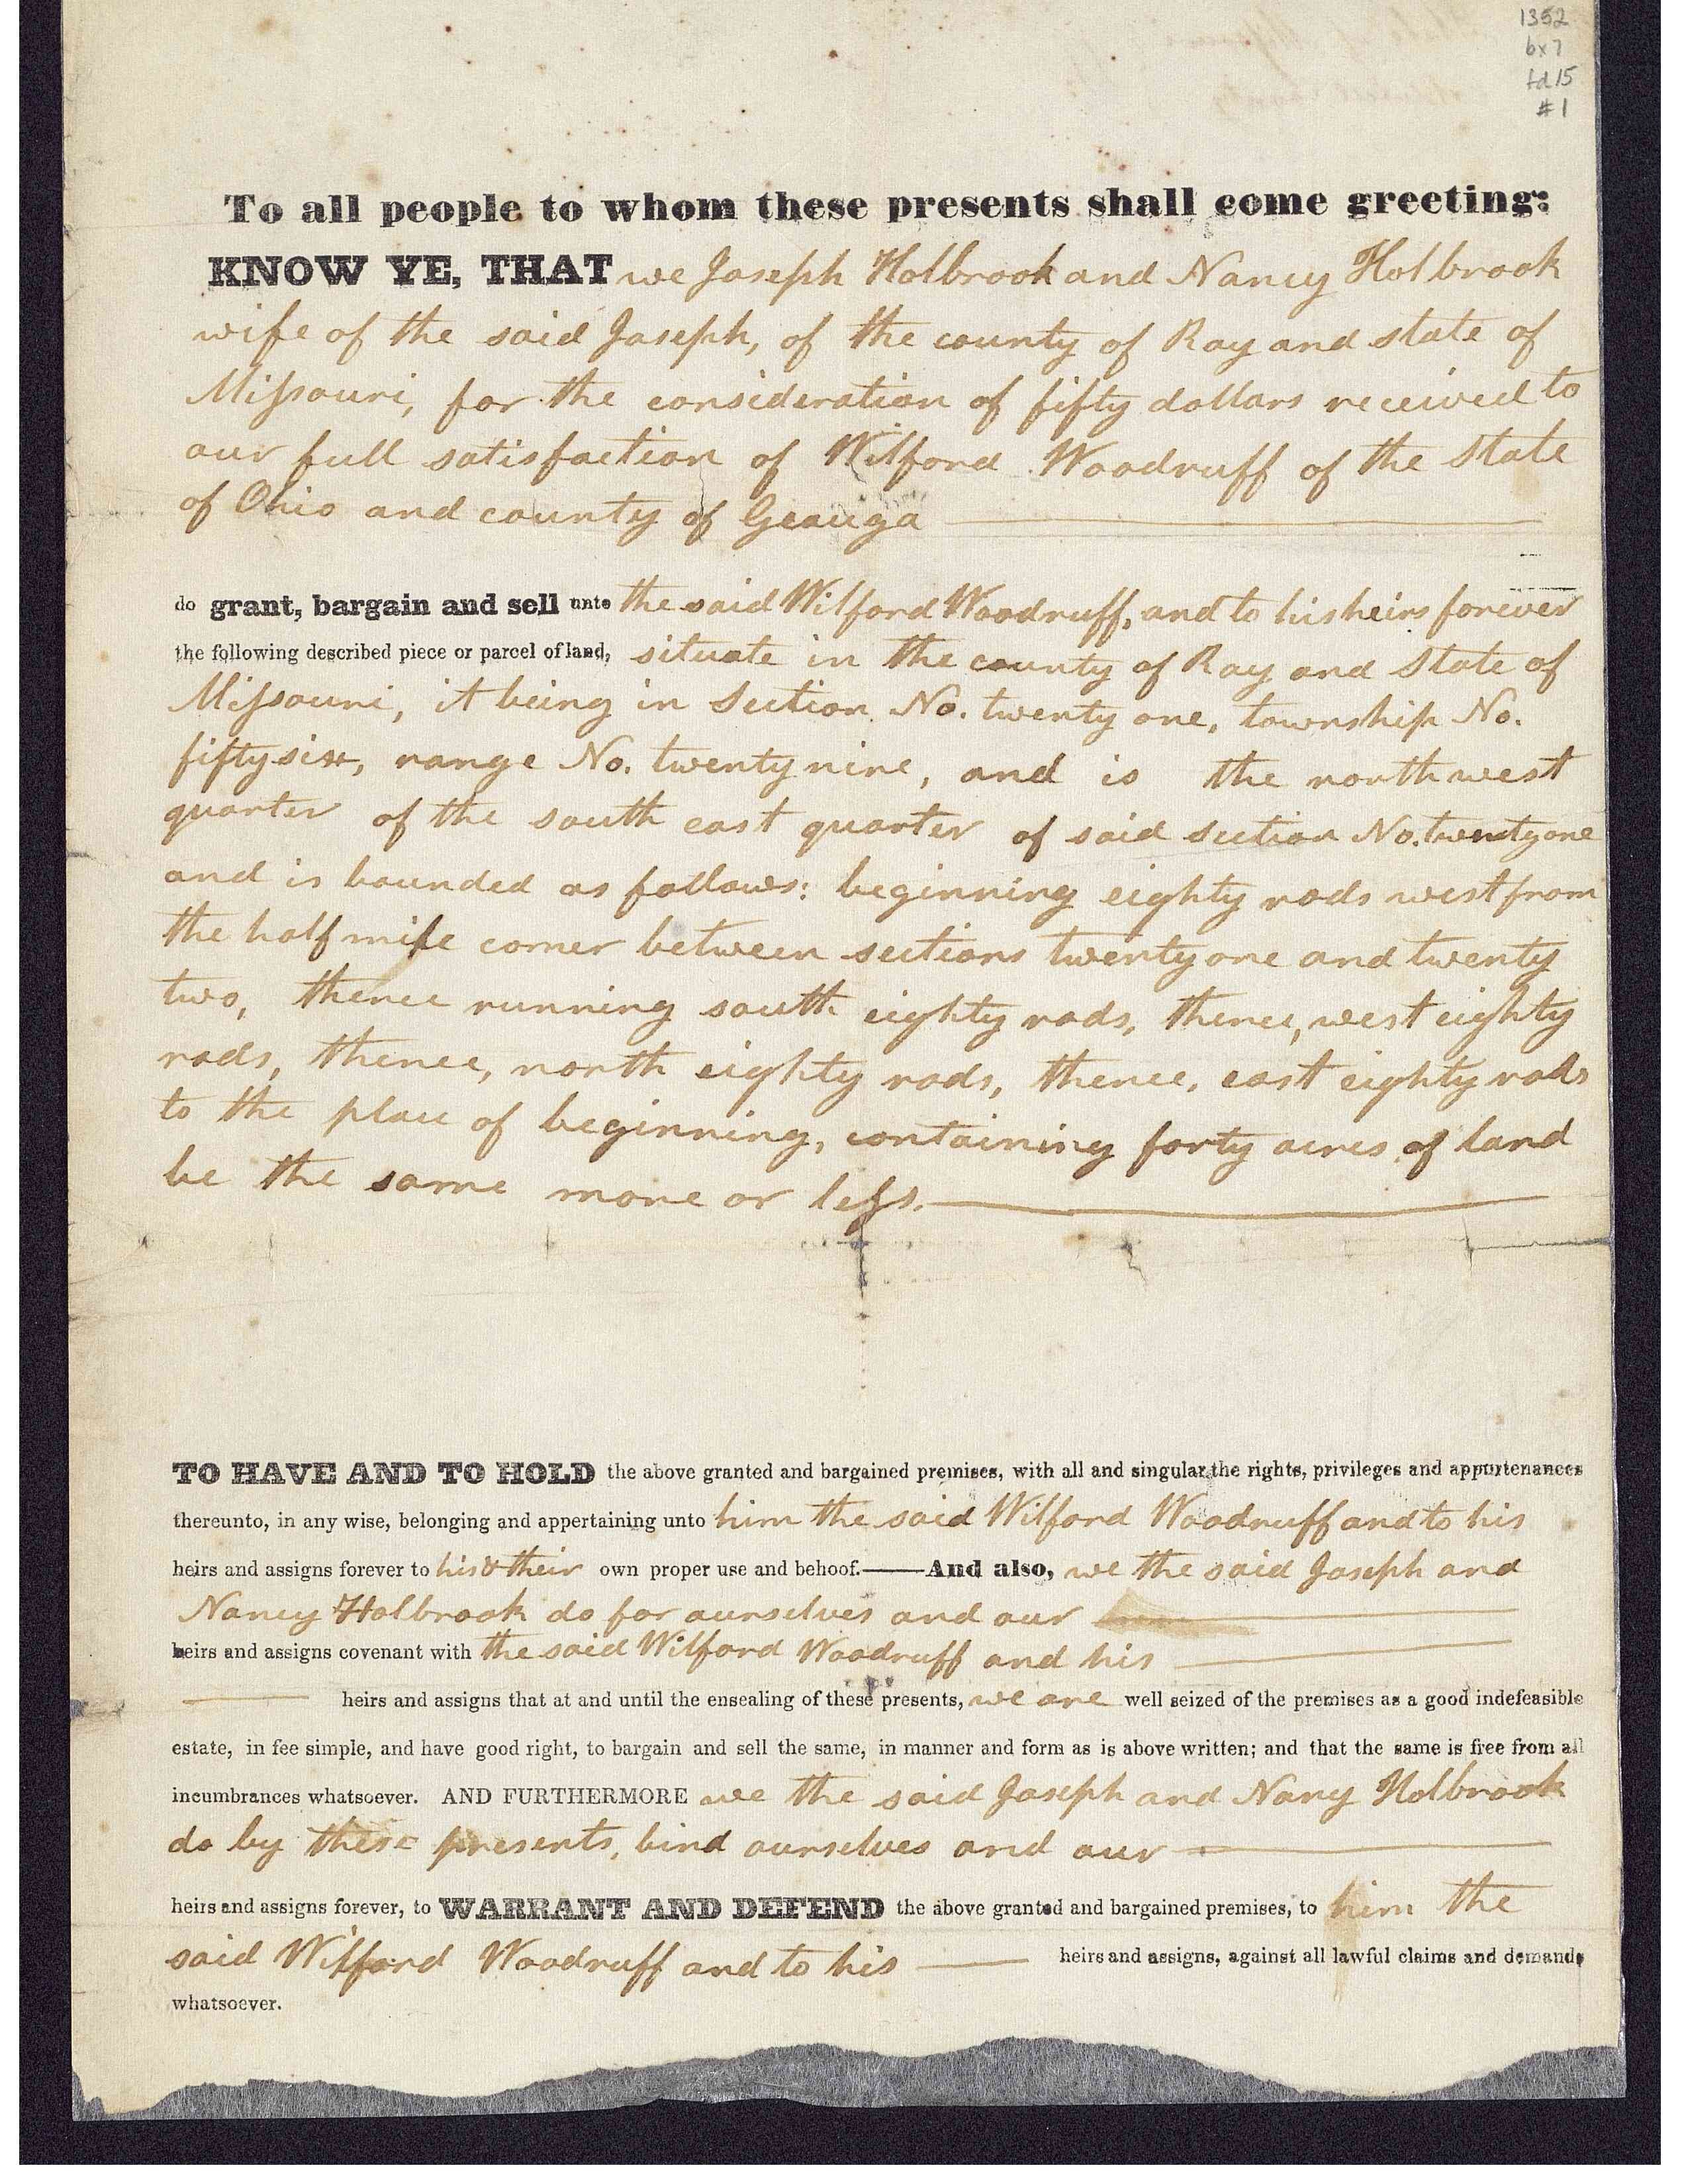 1352
bx 7
fd 15
#1
To all people to whom these presents shall come greeting:
KNOW YE, THAT we Joseph Holbrook and Nancy Holbrook
wife of the said Joseph, of the county of Ray and state of
Missouri, for the consideration of fifty dollars received to
our full satisfaction of Wilford Woodruff of the State
of Ohio and county of Geauga
do grant, bargain and sell unto the said Wilford Woodruff, and to his heirs forever
the following described piece or parcel of land, situate in the county of Ray and State of
Missouri, it being in Section No. twenty one, township No.
fifty six, range No. twenty nine, and is the north west
quarter of the south east quarter of said section No. twenty one
and is bounded as follows: beginning eighty rods west from
the half mile corner between sections twenty one and twenty
two, thence running south eighty rods, thence, west eighty
rods, thence, north eighty rods, thence, east eighty rods
to the place of beginning, containing forty acres of land
be the same more or less.
TO HAVE AND TO HOLD the above granted and bargained premises, with all and singular the rights, privileges and appurtenances
thereunto, in any wise, belonging and appertaining unto him the said Wilford Woodruff and to his
heirs and assigns forever to his & their own proper use and behoof.—And also, we the said Joseph and
Nancy Holbrook do for ourselves and our
heirs and assigns covenant with the said Wilford Woodruff and his
heirs and assigns that at and until the ensealing of these presents, we are well seized of the premises as a good indefeasible
estate, in fee simple, and have good right, to bargain and sell the same, in manner and form as is above written; and that the same is free from all
incumbrances whatsoever. AND FURTHERMORE we the said Joseph and Nany Holbrook
do by these presents, bind ourselves and our
heirs and assigns forever, to WARRANT AND DEFEND the above granted and bargained premises, to him the
said Wilford Woodruff and to his — heirs and assigns, against all lawful claims and demands
whatsoever.